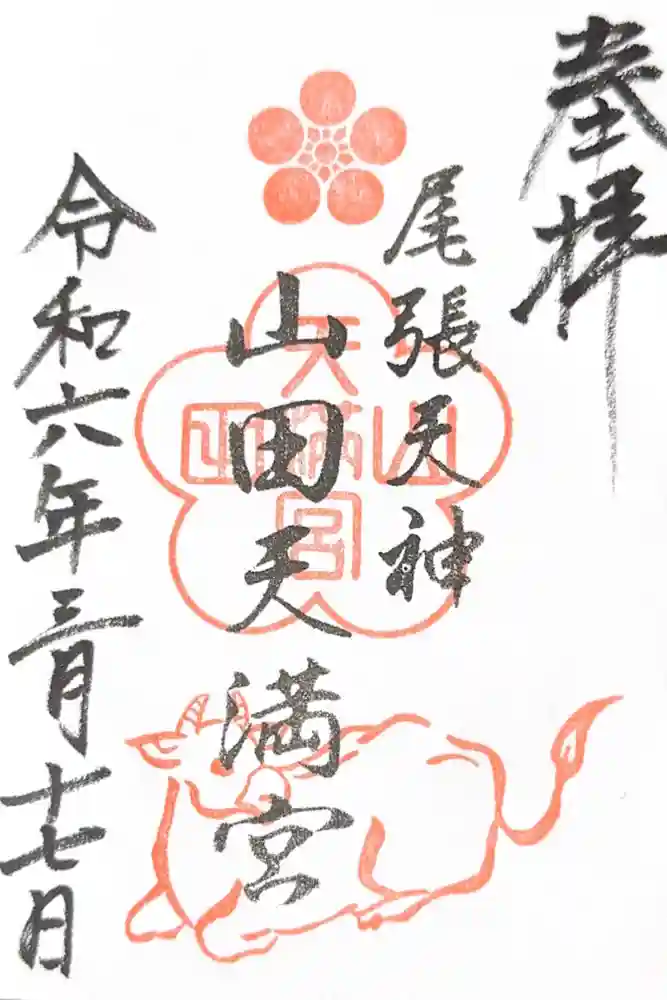 奉拝
尾張天神
山田天満宮
山田天満宮
令和六年三月十七日